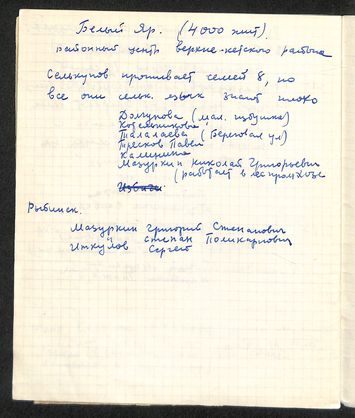 Белый Яр. (4000 жит).
районный центр Верхне-кетского района
Селькупов проживает семей 8, но
все они сельк. язык знают плохо
(мал. избушке)
Котельникова
Талалаева (Береговая ул)
Тресков Павел
Калинина
Мазуркин Николай Григорьевич
(работает в леспромхозе
Рыбинск.
Мазуркин Григорий Степанович
Степан Поликарпович
Иткулов Сергей